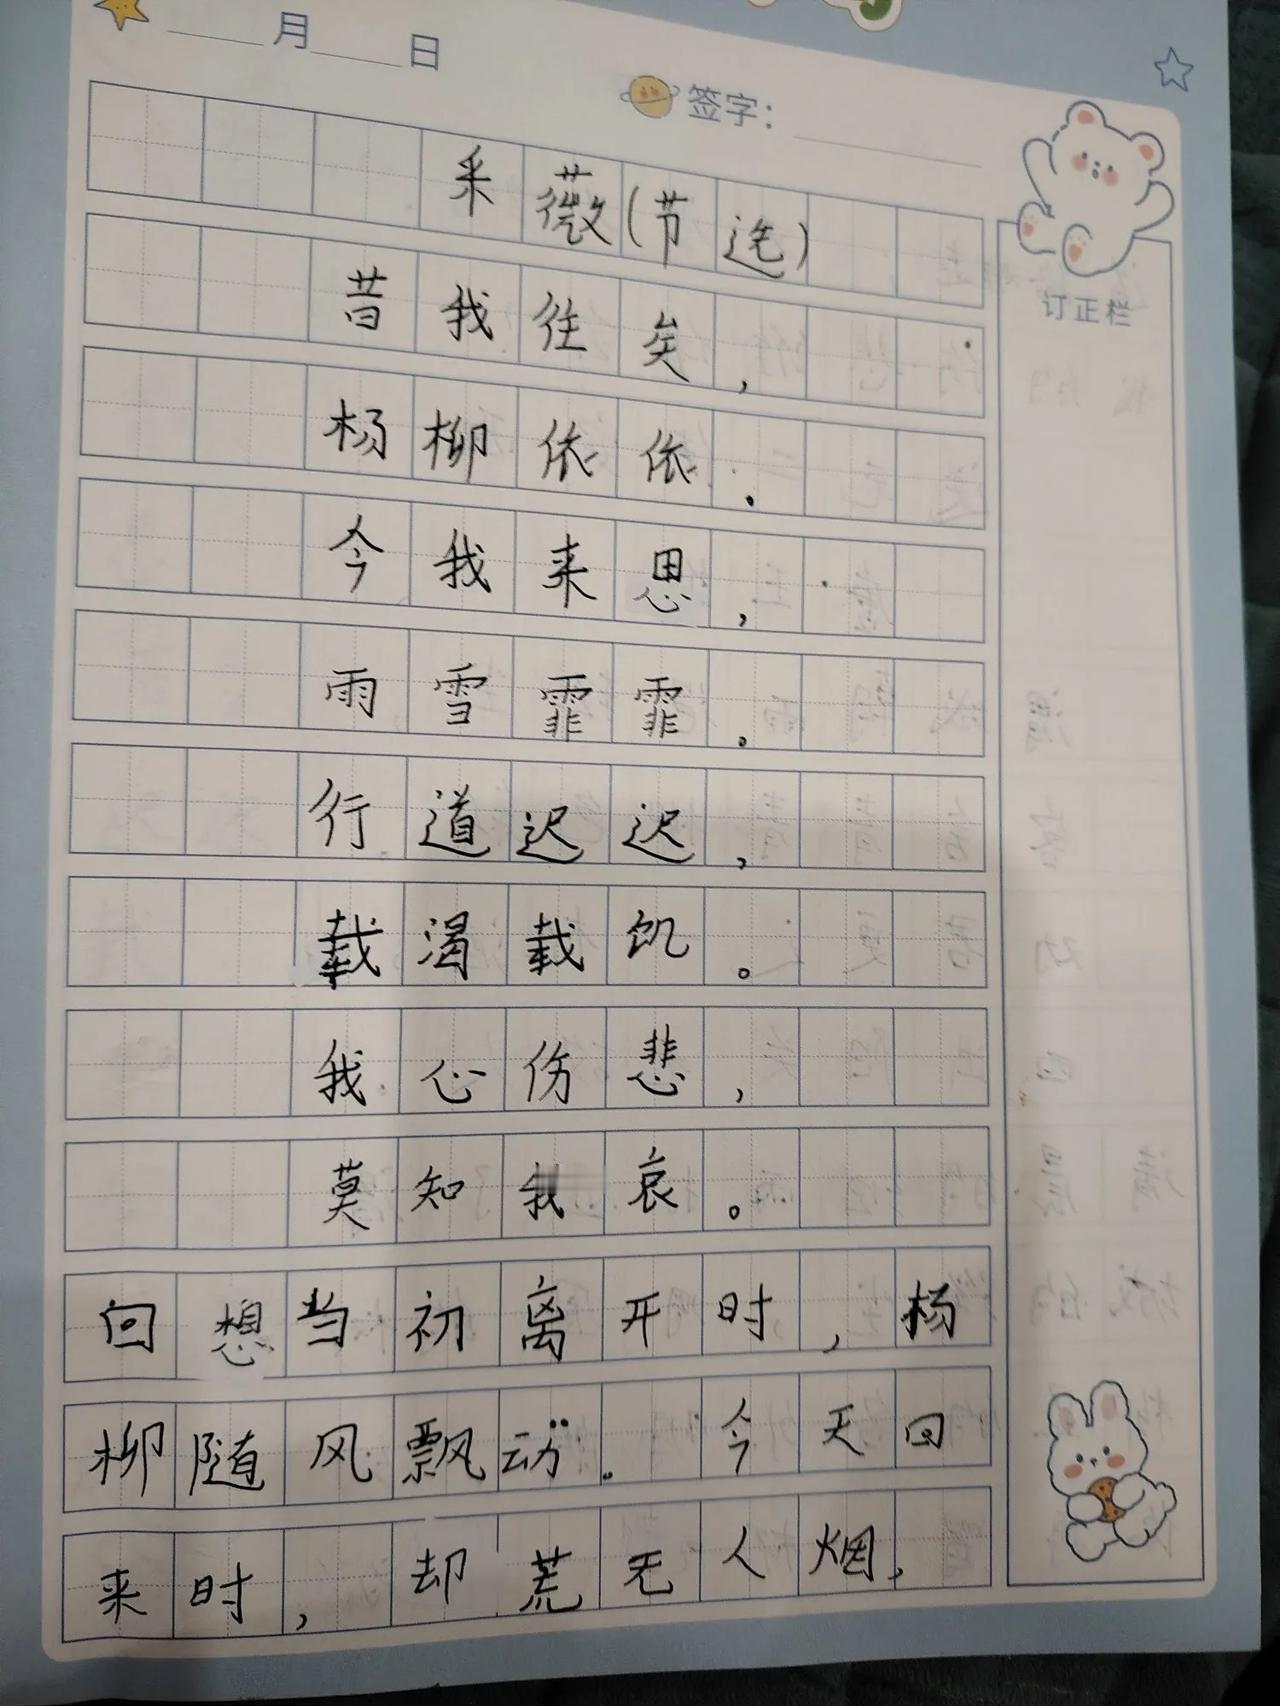 月 日
签字：
采薇(节选)
昔我往矣，
杨柳依依.
今我来思，
雨雪霏霏。
行道迟迟，
载渴载饥。
我心伤悲，
莫知我哀。
回想当初离开时，杨
柳随风飘动。今天回
来时，却荒无人烟，
订正栏